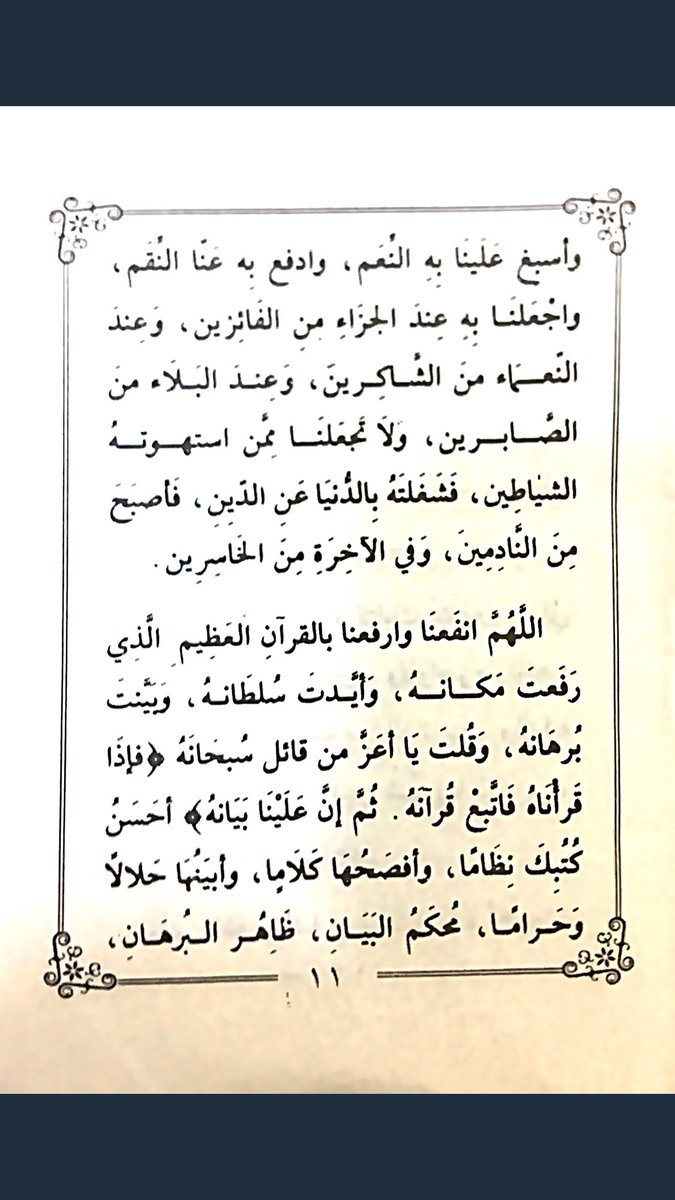 وأسبغ عَلَينَا بِهِ النِّعَم، وادفع بِه عَنّا النِّقَم،
واجْعَلنَـا بِهِ عِندَ الجزَاءِ مِنِ الفَائِزين، وَعِندَ
النّعـــمَاء منَ الشَّـاكِـرينَ، وَعِنـدَ البَـلَاء منَ
الصَّــابــريـن، وَلَا تَجعَلنَــا مِمَّن استهـوتــهُ
الشيَاطِين، فَشَغَلَتهُ بِالدُّنيَا عَنِ الدّينِ، فَأصبَحَ
مِنَ النَّادِمِينَ، وَفي الآخِرَةِ مِنَ الخَاسِرِين.
اللَّهُمَّ انفَعنَا وارفعنا بالقرآنِ العَظِيمِ الَّذِي
رَفَعتَ مَكـانـهُ، وَأيَّـدتَ سُلطَانـهُ، وَبَيَّنتَ
بُرهَانهُ، وَقُلتَ يَا أعَزَّ من قائل سُبحَانَهُ ﴿فإذَا
قَرأْنَاهُ فَاتَّبعْ قُرآنَهُ. ثُمَّ إنَّ عَلَيْنَا بَيَانهُ﴾ أحسَنُ
كُتُبِكَ نِظَامًا، وأفصَحُهَا كَلَامٍا، وأبيَنُهَا حَلالاً
وَحَـرامًـا، مُحكَمُ البَيَـانِ، ظَاهِـُر الـبُرهَـانِ،
١١